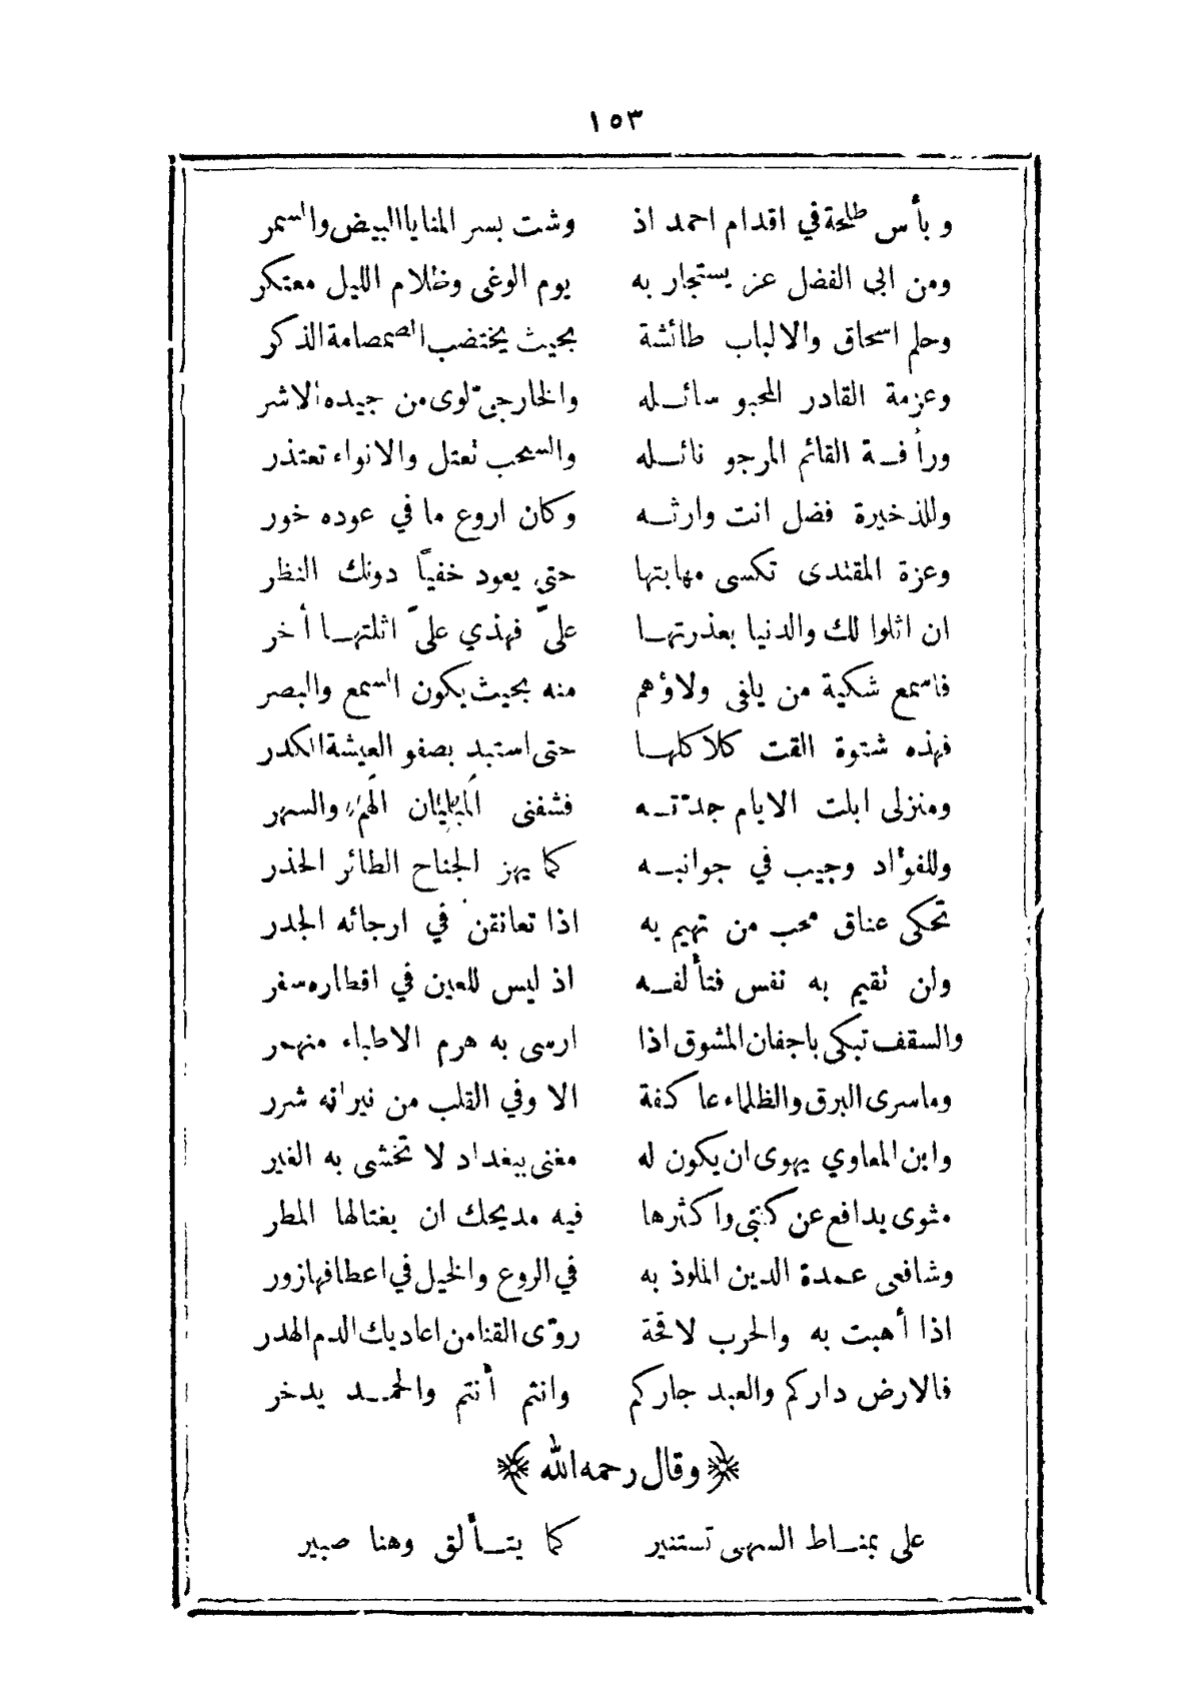 ١٥٣
و بأس طلحة في اقدام احمد اذ وشت بسر المنايا البيض والسمر
ومن ابي الفضل عز يستجار به يوم الوغى وظلام الليل معتكر
وحلم اسحاق والالباب طائشة بحيث يختضب الصمصامة الذكر
وعزمة القادر المحبو سائله والخارجيّ لوى من جيده الاشر
ورأفة القائم المرجو نائله والسحب تعتل والانواء تعتذر
وللذخيرة فضل انت وارثه وكان اروع ما في عوده خور
وعزة المقتدى تكسى مهابتها حتى يعود خفيّا دونك النظر
ان اثلوا لك والدنيا بعذرتها علىّ فهذي علىّ اثلتها أخر
فاسمع شكية من يلفى ولاؤهم منه بحيث يكون السمع والبصر
فهذه شتوة القت كلاكلها حتى استبد بصفو العيشة الكدر
ومنزلى ابلت الايام جدّته فشفنى المبليان الهم والسهر
وللفؤاد وجيب في جوانبه كما يهز الجناح الطائر الحذر
تحكى عناق محب من تهيم به اذا تعانقن في ارجائه الجدر
ولن تقيم به نفس فتألفه اذ ليس للعين في اقطاره سفر
والسقف تبكى باجفان المشوق اذا ارسى به هرم الاطباء منهمر
وما سرى البرق والظلماء عاكفة الا وفي القلب من نيرانه شرر
وابن المعاوي يهوى ان يكون له مغنى ببغداد لا تخشى به الغير
مثوى يدافع عن كتبى واكثرها فيه مديحك ان يغتالها المطر
وشافعى عمدة الدين الملوذ به في الروع والخيل في اعطافها زور
اذا أهبت به والحرب لاقحة روّى القنا من اعاديك الدم الهدر
فالارض داركم والعبد جاركم وانتم أنتم والحمد يدخر
﴿ وقال رحمه الله ﴾
على بمناط السهى تستنير كما يتألق وهنا صبير